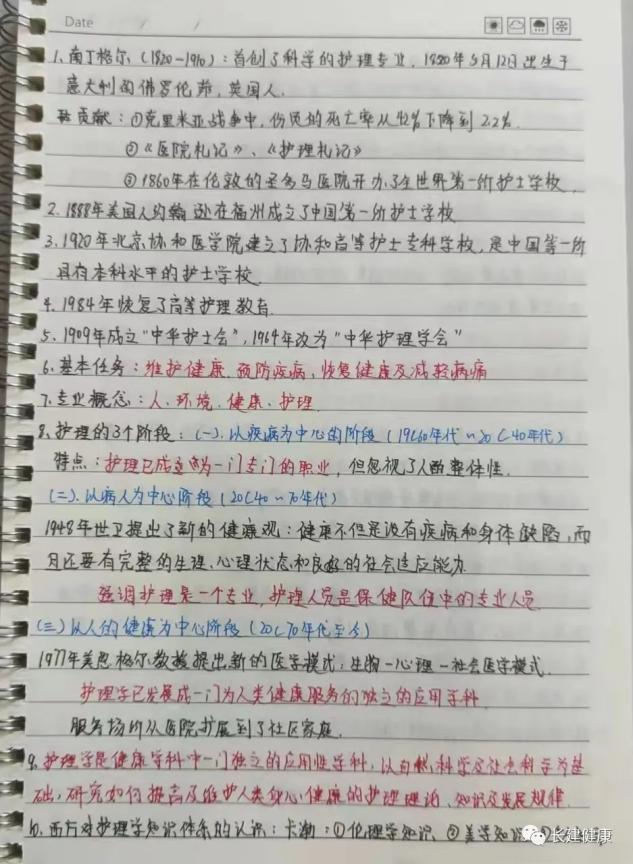 Date / /
1. 南丁格尔（1820-1910）：首创了科学的护理专业，1820年5月12日出生于
意大利的佛罗伦萨，英国人.
贡献：①克里米亚战争中，伤员的死亡率从42%下降到2.2%.
②《医院札记》、《护理札记》
③1860年在伦敦的圣多马医院开办了全世界第一所护士学校.
2. 1888年美国人约翰逊在福州成立了中国第一所护士学校
3. 1920年北京协和医学院建立了协和高等护士专科学校，是中国第一所
具有本科水平的护士学校.
4. 1984年恢复了高等护理教育.
5. 1909年成立“中华护士会”，1964年改为“中华护理学会”
6. 基本任务：维护健康.预防疾病，恢复健康及减轻病痛
7. 专业概念：人.环境.健康.护理.
8. 护理的3个阶段：(一).以疾病为中心的阶段（19C60年代~20C40年代）
特点：护理已成为一门专门的职业，但忽视了人的整体性.
(二).以病人为中心阶段（20C40~70年代）
1948年世卫提出了新的健康观：健康不但是没有疾病和身体缺陷，而
且还要有完整的生理、心理状态和良好的社会适应能力.
强调护理是一个专业，护理人员是保健队伍中的专业人员
(三)以人的健康为中心阶段（20C70年代至今）
1977年美恩格尔教授提出新的医学模式：生物-心理-社会医学模式.
护理学已发展成一门为人类健康服务的独立的应用学科.
服务场所从医院扩展到了社区家庭.
9. 护理学是健康学科中一门独立的应用性学科，以自然科学及社会科学为基
础，研究如何提高及维护人类身心健康的护理理论、知识及发展规律.
10. 西方对护理学知识体系的认识：卡渤：①伦理学知识.②美学知识
长建健康